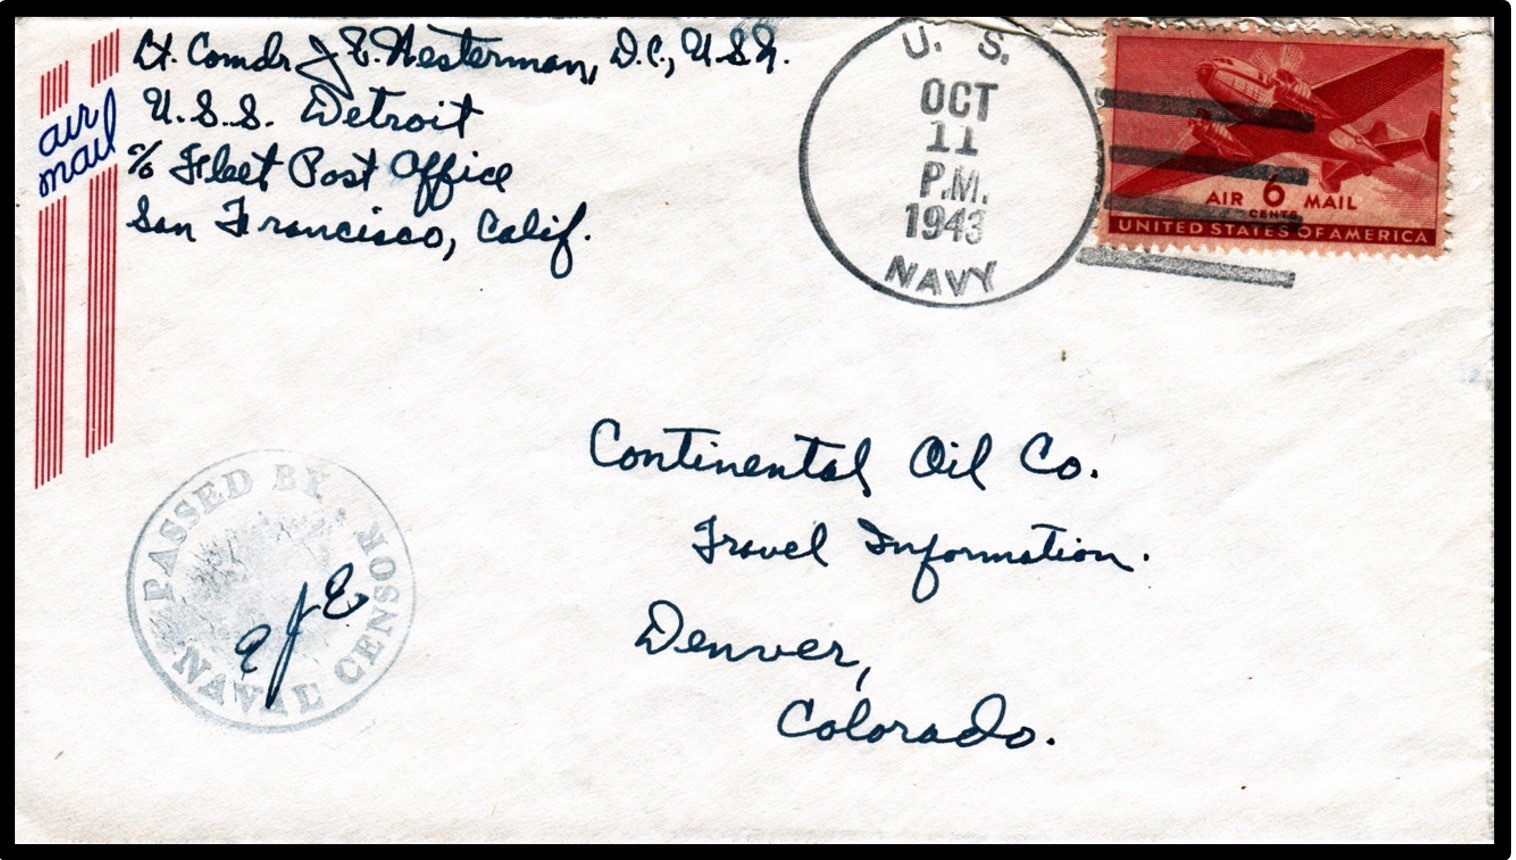 Lt. Comdr J. E. Westerman, D.C., U.S.N.
U.S.S. Detroit
c/o Fleet Post Office
San Francisco, Calif.
air
mail
U. S.
OCT
11
P.M.
1943
NAVY
AIR 6 MAIL
CENTS
UNITED STATES OF AMERICA
Continental Oil Co.
Travel Information.
Denver,
Colorado.
PASSED BY
NAVAL CENSOR